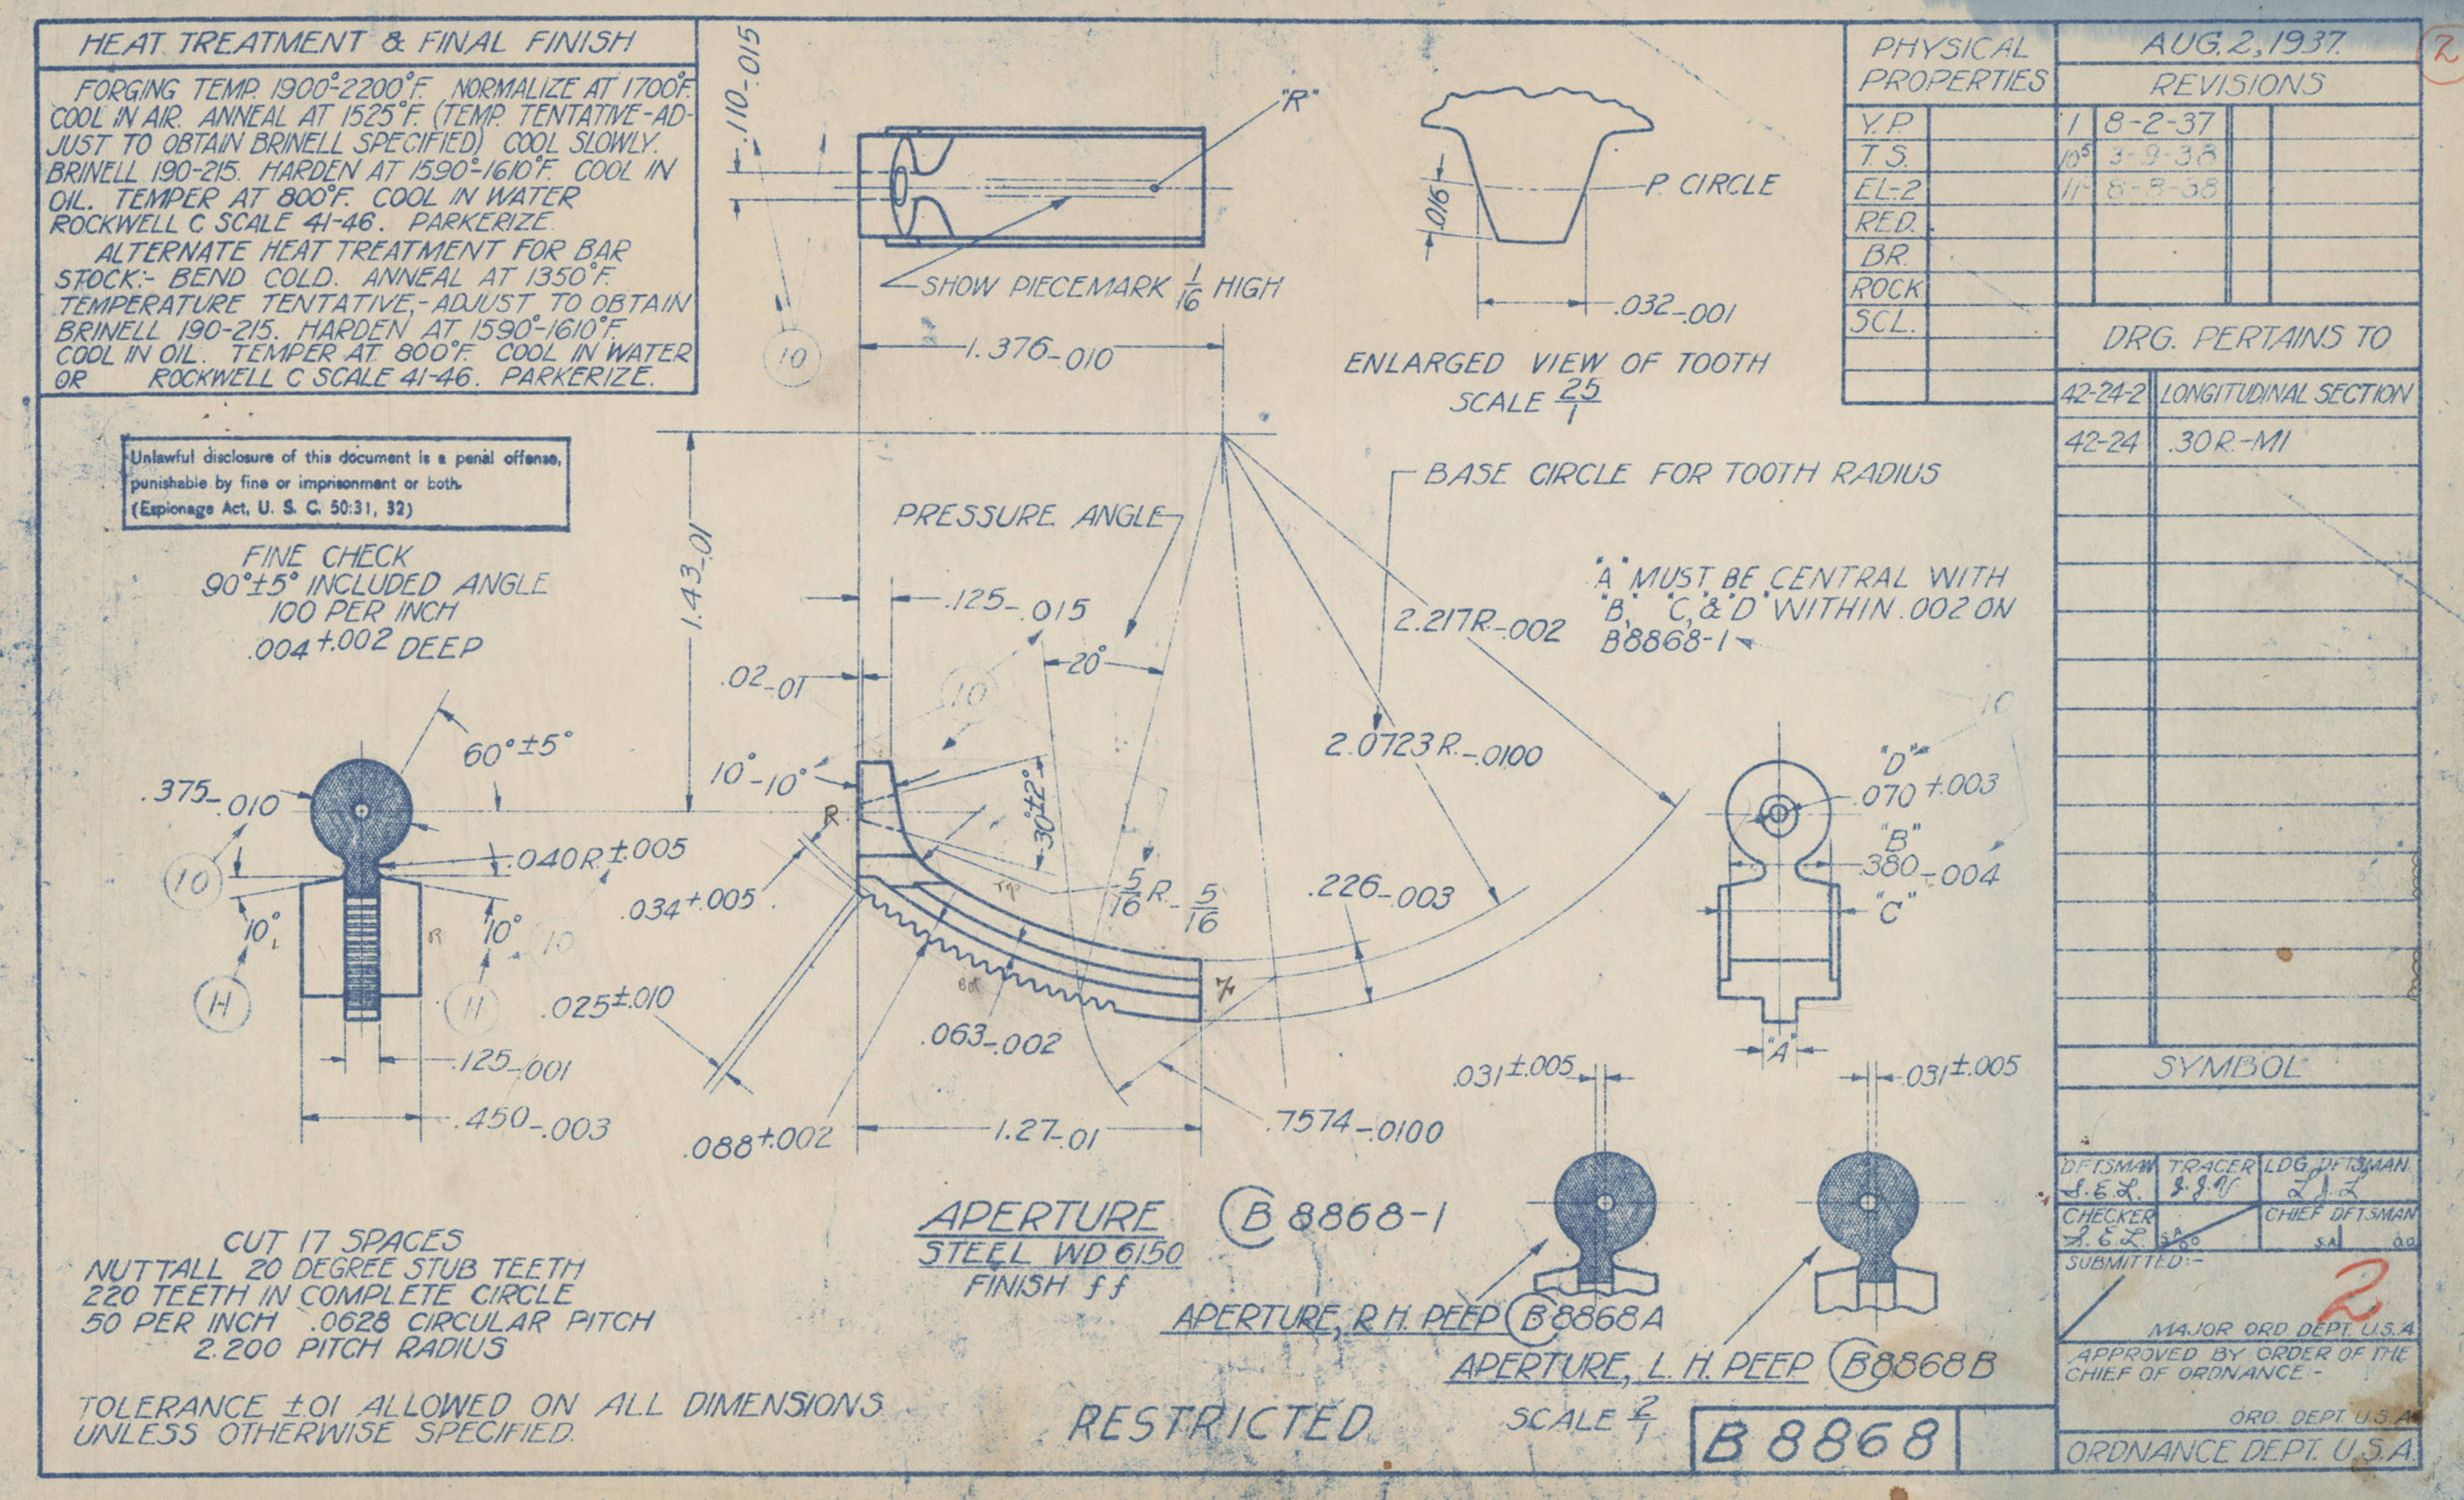 HEAT TREATMENT & FINAL FINISH
FORGING TEMP. 1900°-2200°F. NORMALIZE AT 1700°F.
COOL IN AIR. ANNEAL AT 1525°F. (TEMP. TENTATIVE-AD-
JUST TO OBTAIN BRINELL SPECIFIED) COOL SLOWLY.
BRINELL 190-215. HARDEN AT 1590°-1610°F. COOL IN
OIL. TEMPER AT 800°F. COOL IN WATER
ROCKWELL C SCALE 41-46. PARKERIZE.
ALTERNATE HEAT TREATMENT FOR BAR
STOCK:- BEND COLD. ANNEAL AT 1350°F.
TEMPERATURE TENTATIVE,-ADJUST TO OBTAIN
BRINELL 190-215. HARDEN AT 1590°-1610°F.
COOL IN OIL. TEMPER AT 800°F. COOL IN WATER
OR ROCKWELL C SCALE 41-46. PARKERIZE.
Unlawful disclosure of this document is a penal offense,
punishable by fine or imprisonment or both.
(Espionage Act, U. S. C. 50:31, 32)
FINE CHECK
90°±5° INCLUDED ANGLE
100 PER INCH
.004+.002 DEEP
60°±5°
.375-.010
.040R.±.005
10
10°
10°
10
H
11
R
.125-.001
.450-.003
.110-.015
"R"
SHOW PIECEMARK 1/16 HIGH
10
1.376-.010
.016
P. CIRCLE
.032-.001
ENLARGED VIEW OF TOOTH
SCALE 25/1
1.43-.01
PRESSURE ANGLE
BASE CIRCLE FOR TOOTH RADIUS
.125-.015
.02-.01
10
20°
2.217R.-.002
"A" MUST BE CENTRAL WITH
"B," "C," & "D" WITHIN .002 ON
B8868-1
10
10°-10°
R
30°±2°
2.0723R.-.0100
.034+.005
5/16 R.-5/16
.226-.003
Top
Bot
.025±.010
.063-.002
.088+.002
1.27-.01
.7574-.0100
"D"
.070+.003
"B"
.380-.004
"C"
"A"
.031±.005
.031±.005
APERTURE B8868-1
STEEL WD 6150
FINISH f f
APERTURE, R.H. PEEP B8868A
APERTURE, L.H. PEEP B8868B
SCALE 2/1
CUT 17 SPACES
NUTTALL 20 DEGREE STUB TEETH
220 TEETH IN COMPLETE CIRCLE
50 PER INCH .0628 CIRCULAR PITCH
2.200 PITCH RADIUS
TOLERANCE ±.01 ALLOWED ON ALL DIMENSIONS
UNLESS OTHERWISE SPECIFIED.
RESTRICTED
B 8868
PHYSICAL
PROPERTIES
Y.P.
T.S.
EL-2
RED.
BR.
ROCK
SCL.
AUG. 2, 1937.
2
REVISIONS
1 8-2-37
10⁵ 3-9-38
11- 8-8-38
DRG. PERTAINS TO
42-24-2 LONGITUDINAL SECTION
42-24 .30R.-M1
SYMBOL
DFTSMAN TRACER LDG. DFTSMAN
S.E.L. J.J.V. L.J.L
CHECKER CHIEF DFTSMAN
S.E.L. S.A.
SUBMITTED:-
2
MAJOR ORD. DEPT. U.S.A.
APPROVED BY ORDER OF THE
CHIEF OF ORDNANCE.-
ORD. DEPT. U.S.A.
ORDNANCE DEPT. U.S.A.